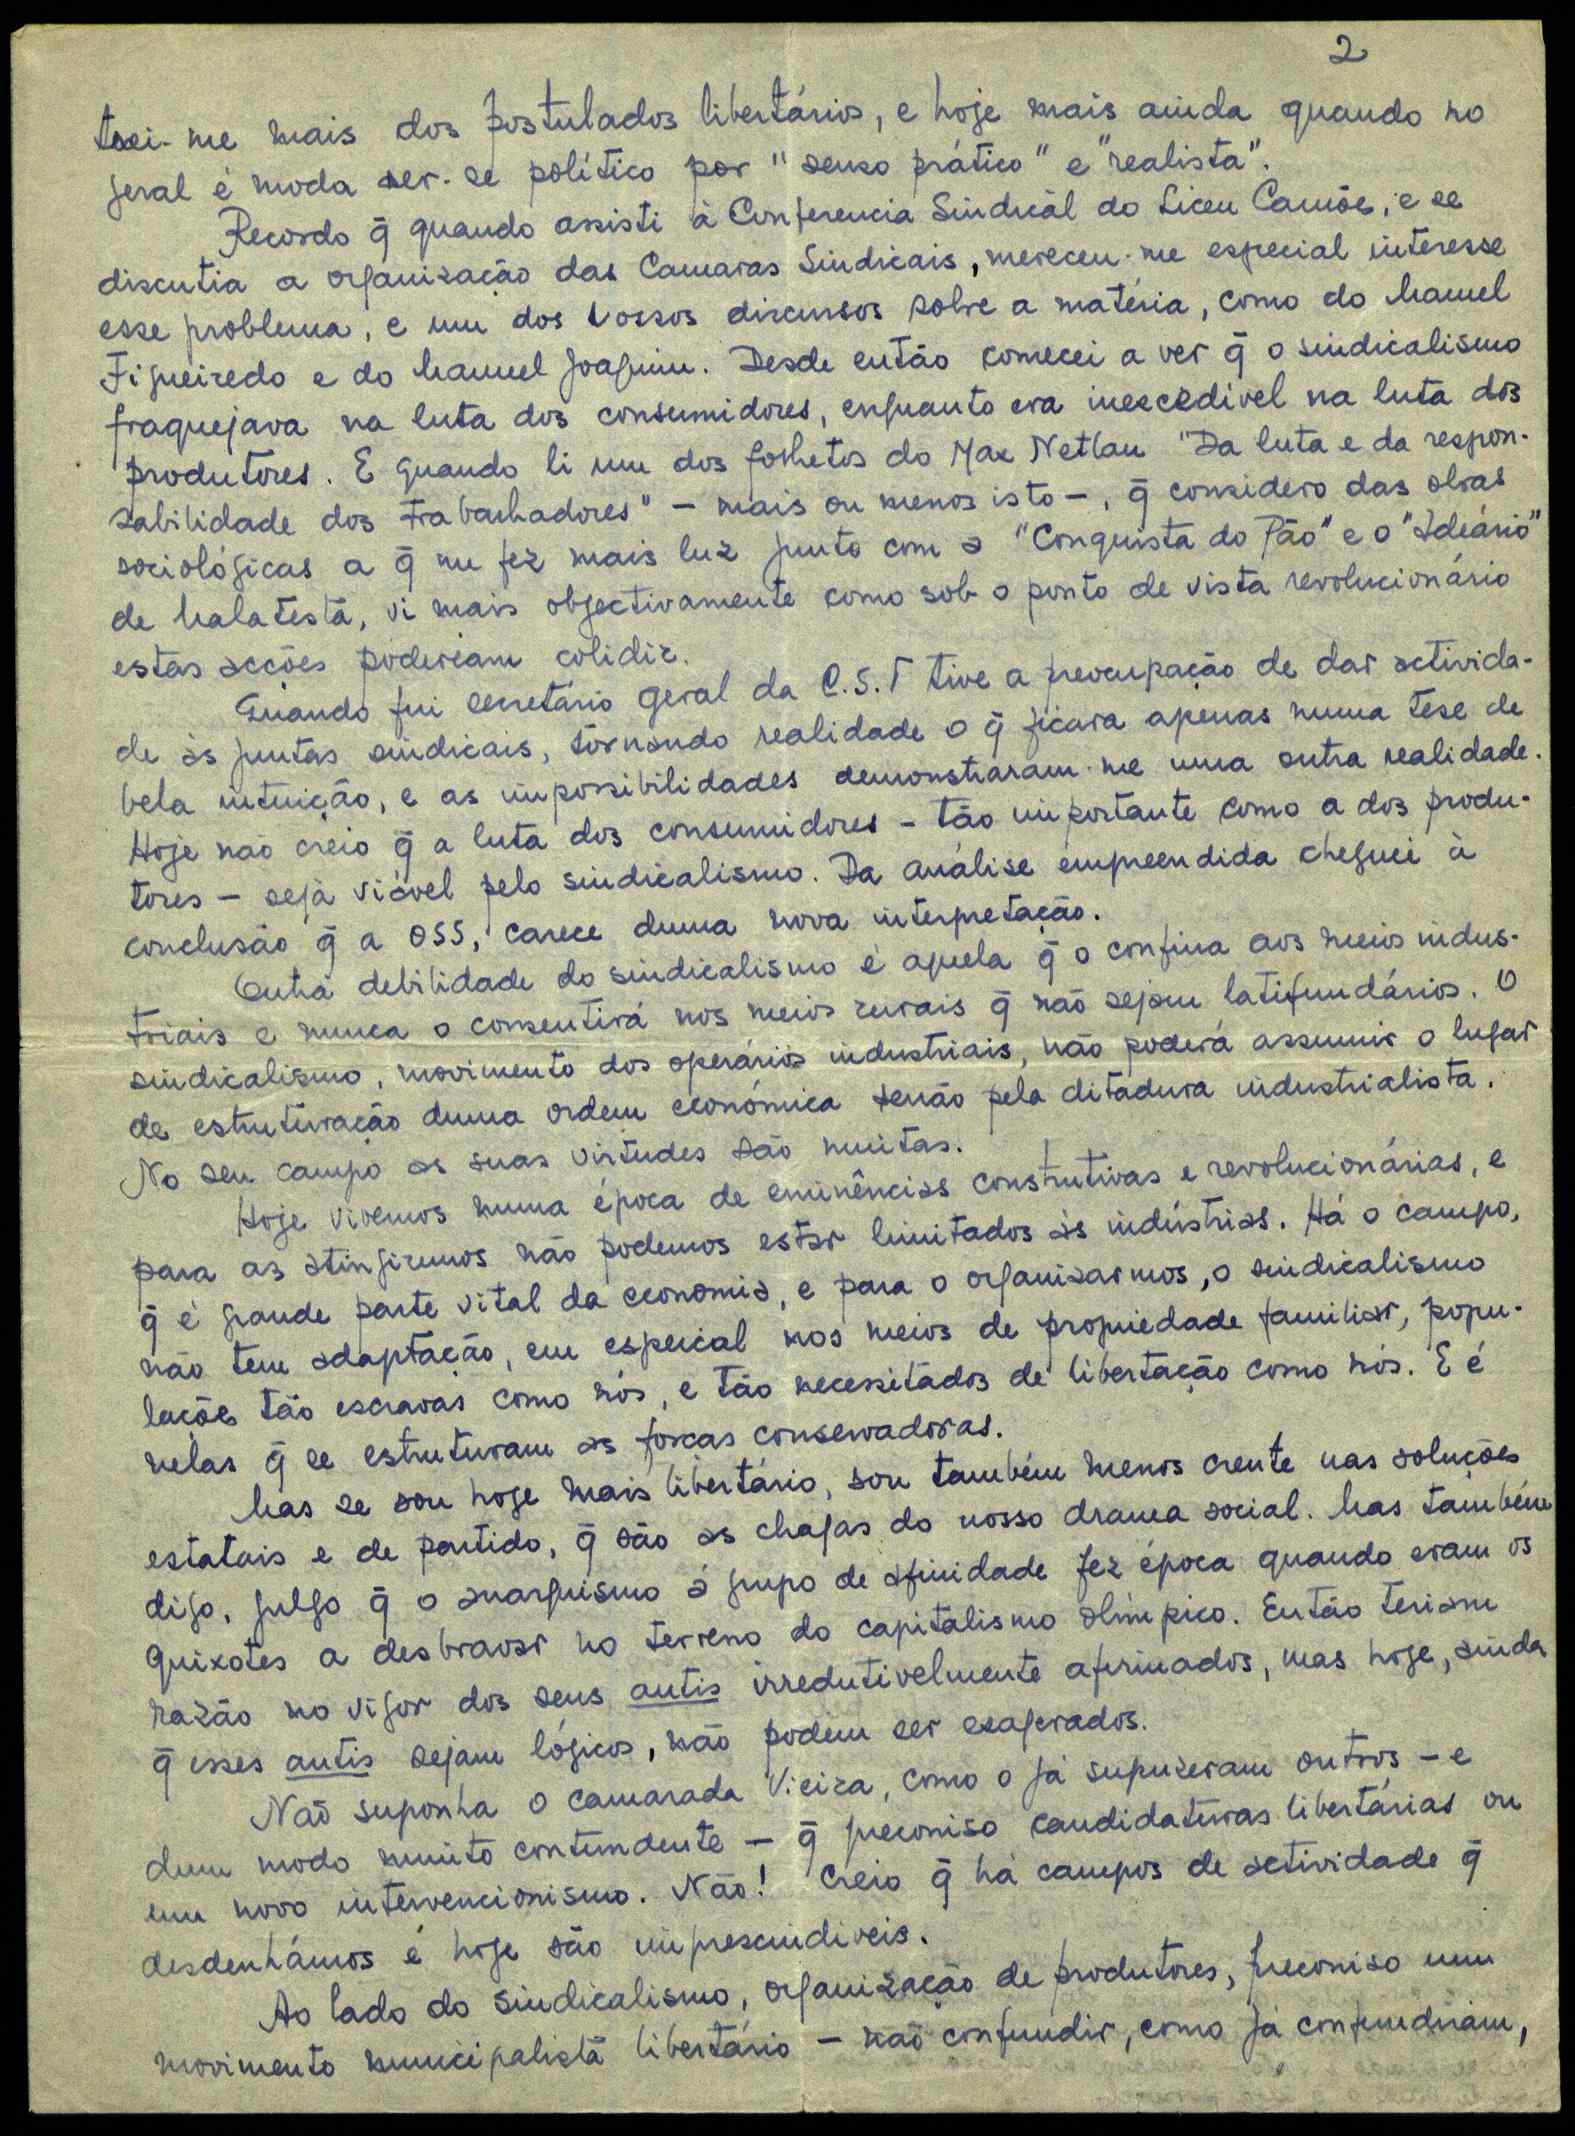 2
tei-me mais dos postulados libertários, e hoje mais ainda quando no
geral é moda ser-se político por "senso prático" e "realista".
Recordo q̄ quando assisti à Conferencia Sindicál do Liceu Camões, e se
discutia a organização das Camaras Sindicais, mereceu-me especial interesse
esse problema, e um dos vossos discursos sobre a matéria, como do Manuel
Figueiredo e do Manuel Joaquim. Desde então comecei a ver q̄ o sindicalismo
fraquejava na luta dos consumidores, enquanto era inexcedivel na luta dos
produtores. E quando li um dos folhetos do Max Netlau "Da luta e da respon-
sabilidade dos trabanhadores" - mais ou menos isto -, q̄ considero das obras
sociológicas a q̄ me fez mais luz junto com a "Conquista do Pão" e o "Ideário"
de Malatesta, vi mais objectivamente como sob o ponto de vista revolucionário
estas acções poderiam colidir.
Quando fui secretário geral da C.S.T tive a preocupação de dar activida-
de às juntas sindicais, tornando realidade o q̄ ficara apenas numa tese de
bela intuição, e as impossibilidades demonstraram-me uma outra realidade.
Hoje não creio q̄ a luta dos consumidores - tão importante como a dos produ-
tores - seja viável pelo sindicalismo. Da análise empreendida cheguei à
conclusão q̄ a OSS, carece duma nova interpretação.
Outra debilidade do sindicalismo é aquela q̄ o confina aos meios indus-
triais e nunca o consentirá nos meios rurais q̄ não sejam latifundários. O
sindicalismo, movimento dos operários industriais, não poderá assumir o lugar
de estruturação duma ordem económica senão pela ditadura industrialista.
No seu campo as suas virtudes são muitas.
Hoje vivemos numa época de eminências construtivas e revolucionárias, e
para as atingiremos não podemos estar limitados às indústrias. Há o campo,
q̄ é grande parte vital da economia, e para o organizarmos, o sindicalismo
não tem adaptação, em espeical nos meios de propriedade familiar, popu-
lações tão escravas como nós, e tão necessitados de libertação como nós. E é
nelas q̄ se estruturam as forças conservadoras.
Mas se sou hoje mais libertário, sou também menos crente nas soluções
estatais e de partido, q̄ são as chagas do nosso drama social. Mas também
digo, julgo q̄ o anarquismo á grupo de afinidade fez época quando eram os
Quixotes a desbravar no terreno do capitalismo olímpico. Então teriam
razão no vigor dos seus antis irredutivelmente afirmados, mas hoje, ainda
q̄ esses antis sejam lógicos, não podem ser exagerados.
Não suponha o camarada Vieira, como o já supuzeram outros - e
dum modo muito contundente - q̄ preconiso candidaturas libertárias ou
um novo intervencionismo. Não! Creio q̄ há campos de actividade q̄
desdenhámos e hoje são imprescindiveis.
Ao lado do sindicalismo, organização de produtores, preconiso um
movimento municipalista libertário - não confundir, como já confundiram,